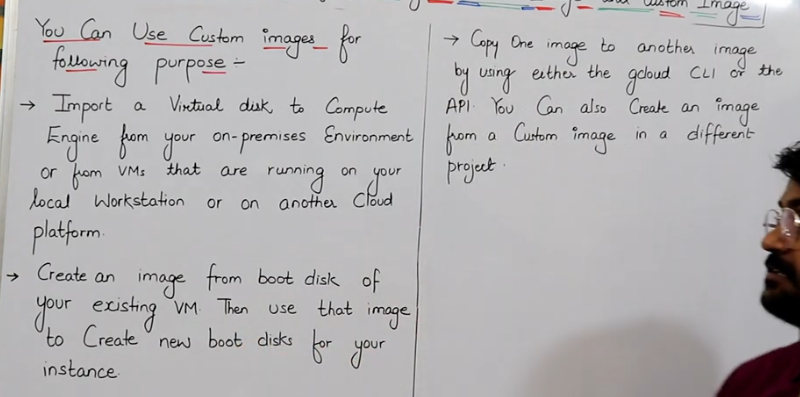 and Custom Image
You Can Use Custom images for
following purpose :-
→ Import a Virtual disk to Compute
Engine from your on-premises Environment
or from VMs that are running on your
local Workstation or on another Cloud
platform.
→ Create an image from boot disk of
your existing VM. Then use that image
to Create new boot disks for your
instance.
→ Copy One image to another image
by using either the gcloud CLI or the
API. You Can also Create an image
from a Custom image in a different
project.